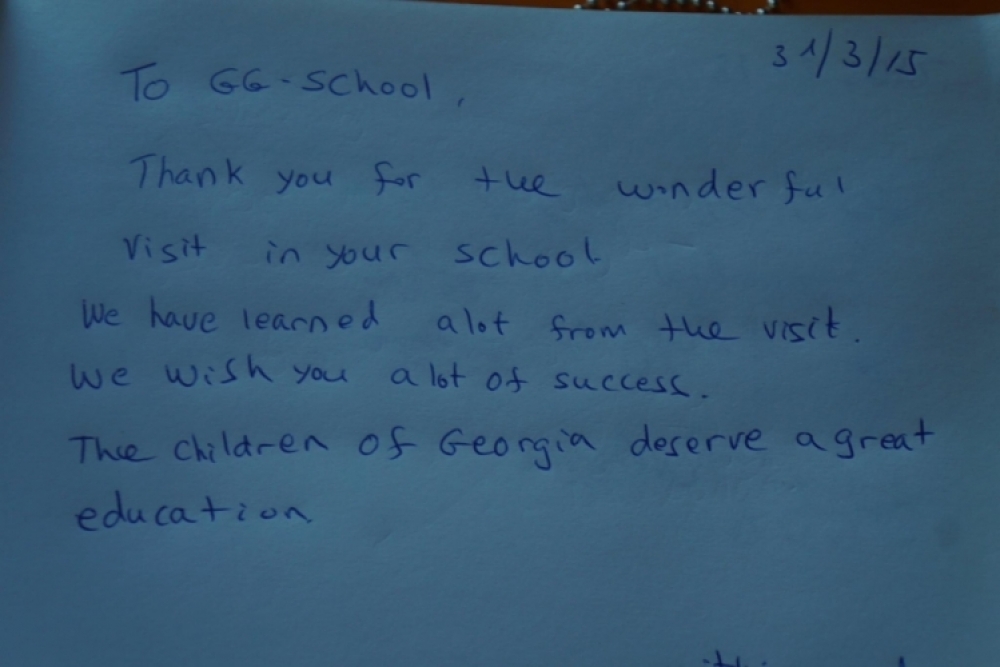 31/3/15
To GG-School,
Thank you for the wonderful
visit in your school
We have learned alot from the visit.
We wish you a lot of success.
The children of Georgia deserve a great
education.